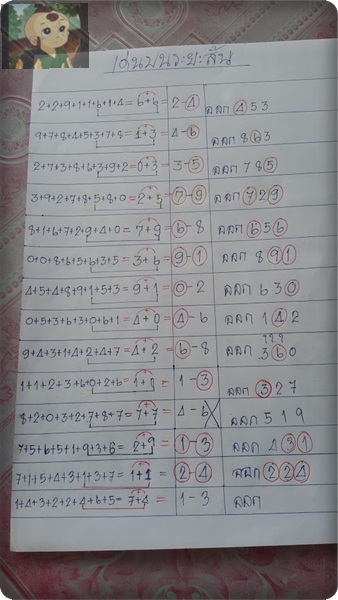 เด่นบนระยะสั้น
2+2+9+1+1+6+1+4= 6+6= 2-4 ออก 453
9+7+8+4+5+3+7+8= 1+3= 4-6 ออก 863
2+7+3+8+6+3+9+2= 0+3= 3-5 ออก 785
3+9+2+7+8+5+8+0= 2+5= 7-9 ออก 729
8+1+6+7+2+9+4+0= 7+9= 6-8 ออก 656
0+0+8+6+5+6+3+5= 3+6= 9-1 ออก 891
4+5+4+8+9+1+5+3= 9+1= 0-2 ออก 630
0+5+3+6+3+0+6+1= 4+0= 4-6 ออก 142
9+4+3+1+4+2+4+7= 4+2= 6-8 ออก 360
1+1+2+3+6+0+2+6= 1-3 ออก 327
8+2+0+3+2+7+8+7= 7+7= 4-6 ออก 519
7+5+6+5+1+9+3+6= 2+9= 1-3 ออก 431
7+1+5+4+3+1+3+7= 1+1= 2-4 ออก 224
1+4+3+2+2+4+6+5= 7+4= 1-3 ออก